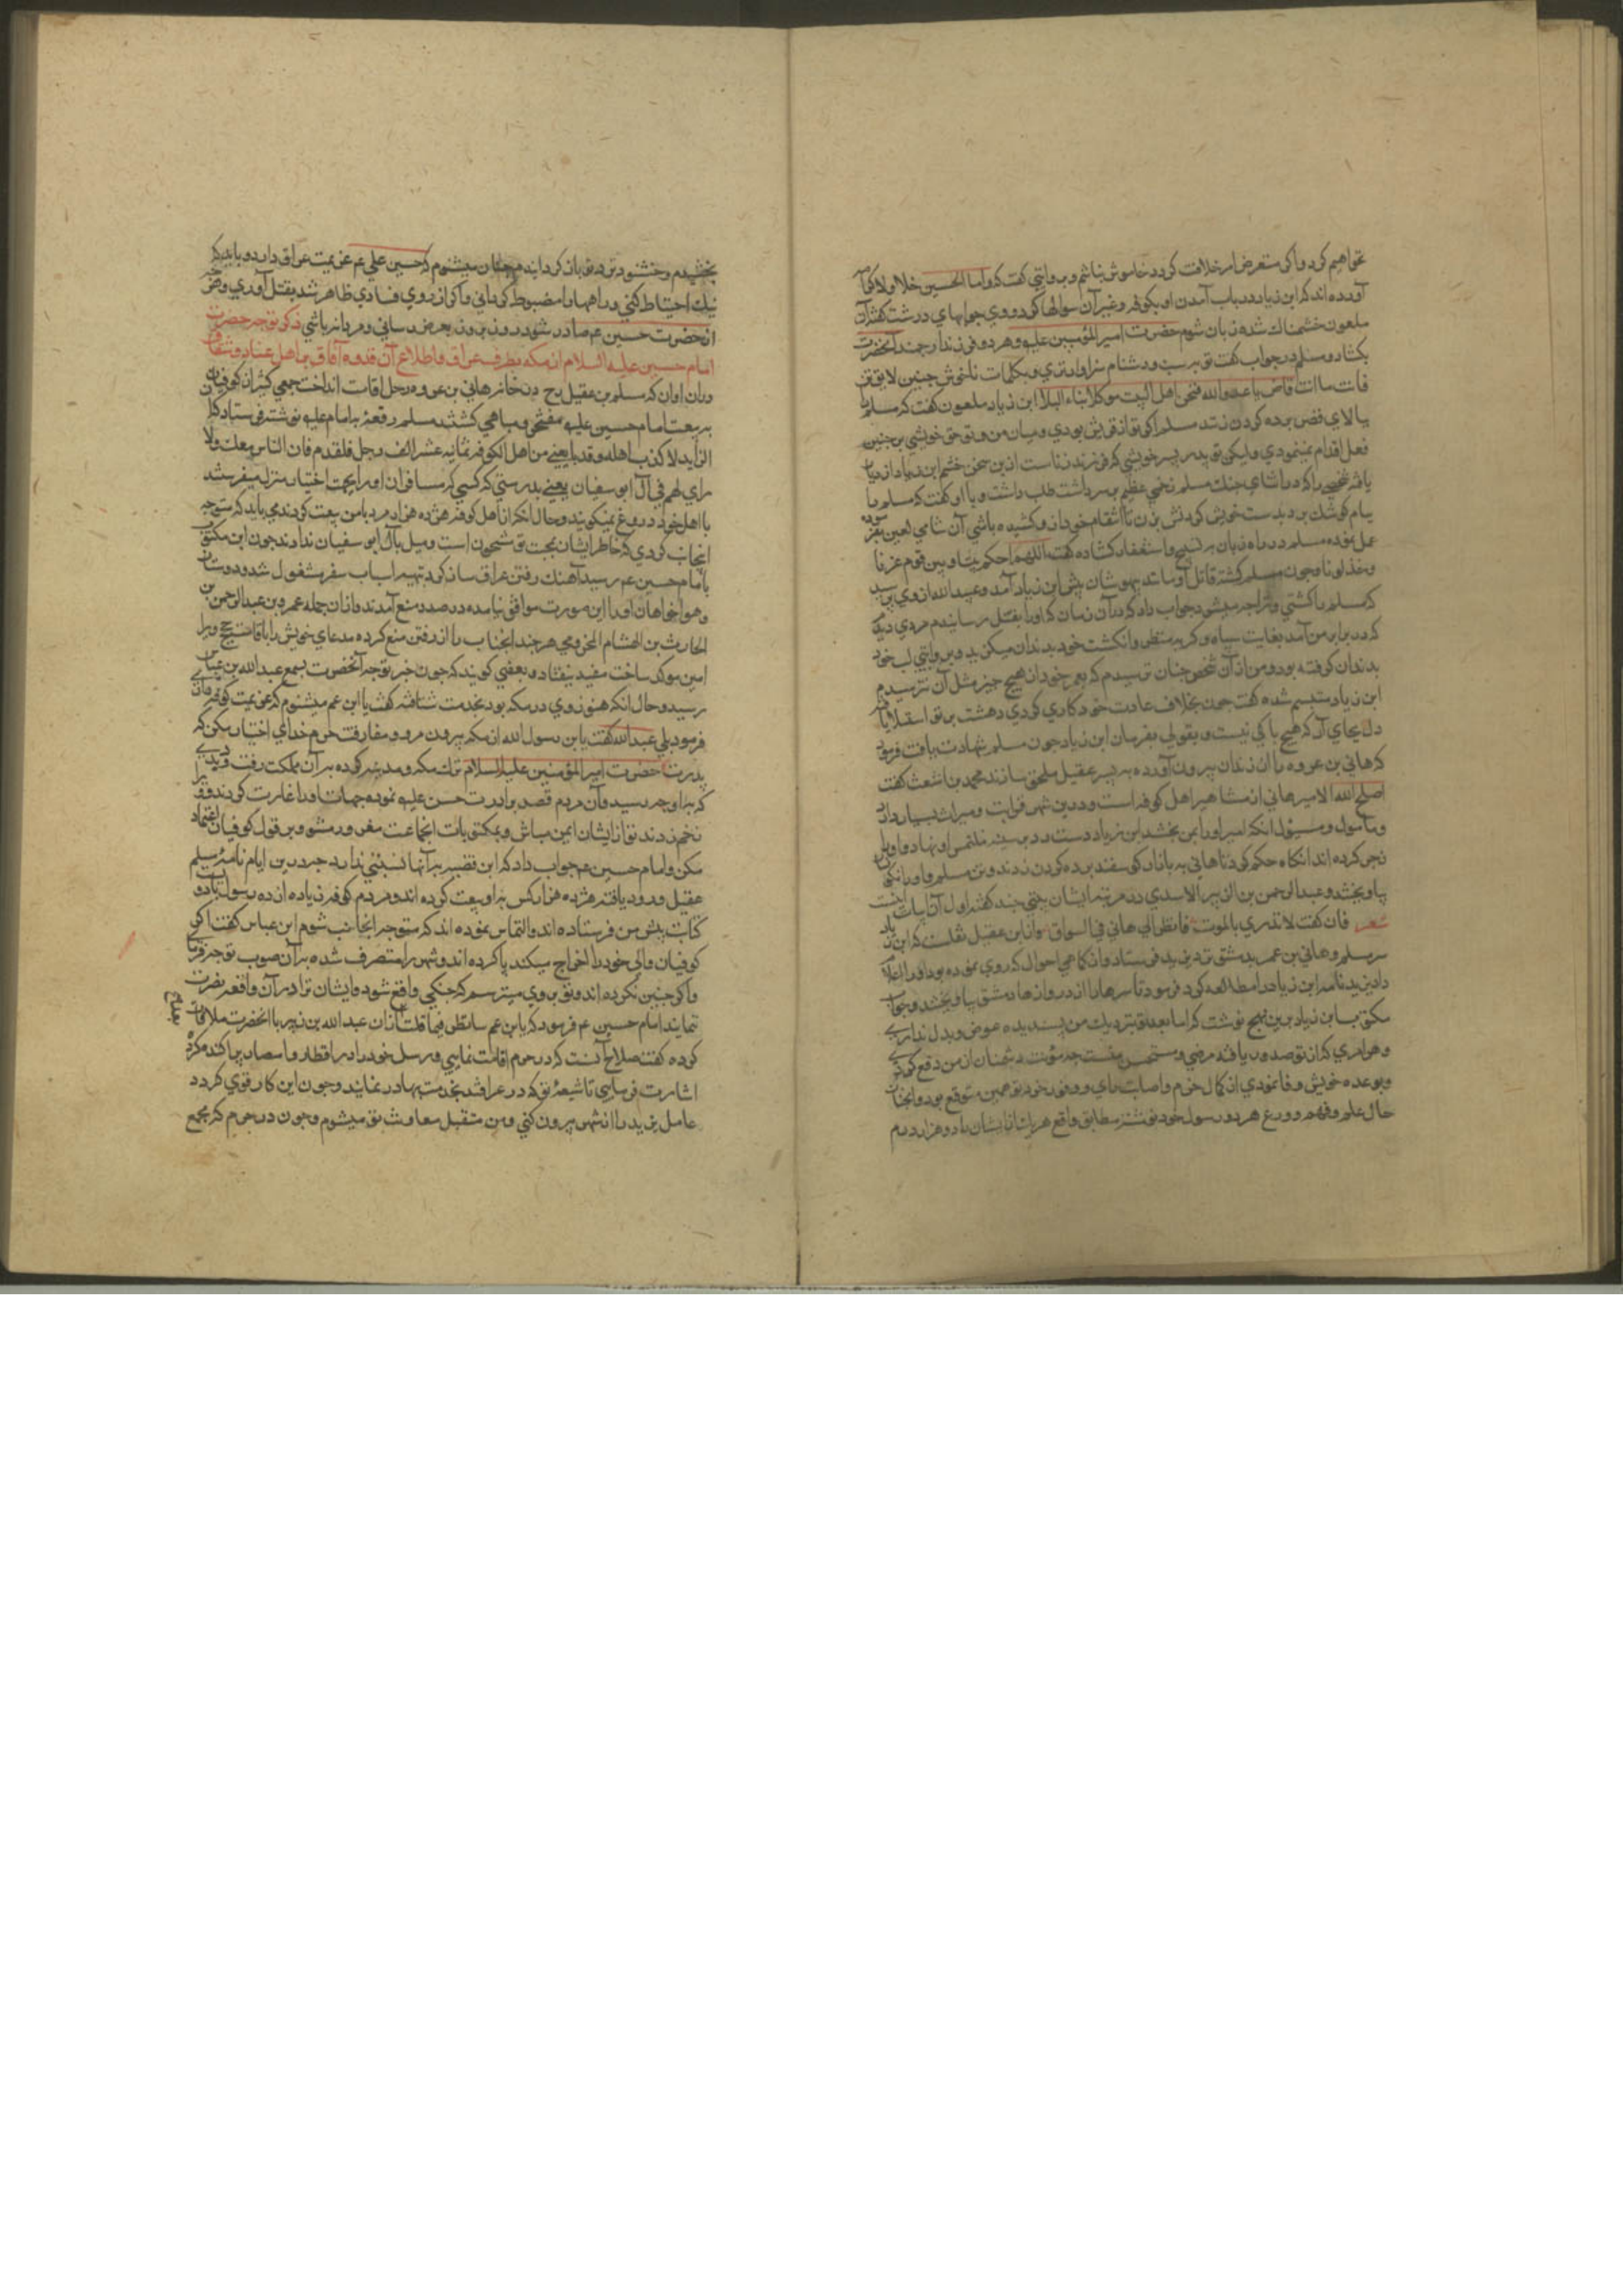 نخواهیم کرد و اگر متعرض امر خلافت گردد خاموش نباشم و بروایتی گفت که و اما الحسین فلا ولا کرامه
آورده‌اند که ابن زیاد در باب آمدن او بکوفه و غیر آن سوالها کرد و وی جوابهای درشت گفته آن
ملعون خشمناک شده زبان شوم حضرت امیر المؤمنین علیه و هر دو فرزند ارجمند آنحضرت
بکشاد و مسلم در جواب گفت تو بسب و دشنام سزاوارتری و بکلمات ناخوش چنین لایق‌تر
فانت ما انت قاض یا عدو الله فنحن اهل البیت موکلا بناء البلا ابن زیاد ملعون گفت که مسلم را
ببالای قصر برده گردن زنند مسلم اگر تو از قریش بودی و میان من و تو حق خویشی بر چنین
فعل اقدام نمینمودی ولیکن تو پدر پسر خویشی که فرزند زناست ازین سخن خشم ابن زیاد ازدیاد
یافته شخصی را که در اثنای جنک مسلم زخمی عظیم بر سر داشت طلب داشت و با او گفت که مسلم را
ببام کوشک برد بدست خویش گردنش بزن تا انتقام خود از و کشیده باشی آن شامی لعین بفرموده
عمل نموده مسلم در راه زبان به تسبیح و استغفار کشاده گفت اللهم احکم بیننا و بین قوم غرونا
و خذلونا و چون مسلم کشته قاتل او مانند بیهوشان پیش ابن زیاد آمد و عبید الله از وی پرسید
که مسلم را کشتی و ترا چه میشود جواب داد که در آن زمان که او را بقتل رسانیدم مردی دیدم
که در برابر من آمد بغایت سیاه و کریه منظر و انگشت خود بدندان میکزید و بروایتی لب خود
بدندان گرفته بود و من از آن شخص چنان ترسیدم که بعمر خود از هیچ چیز مثل آن نترسیدم
ابن زیاد متبسم شده گفت چون بخلاف عادت خود کاری کردی دهشت بر تو استیلا یافته
دل بجای آر که هیچ باکی نیست و بقولی بفرمان ابن زیاد چون مسلم شهادت یافت فرمود
که هانی بن عروه را از زندان بیرون آورده به پسر عقیل ملحق سازند محمد بن اشعث گفت
اصلح الله الامیر هانی از مشاهیر اهل کوفه است و درین شهر قرابت و میراث بسیار دارد
و مأمول و مسؤل آنکه امیر او را بمن بخشد ابن زیاد دست رد بر سینه ملتمس او نهاد و او را
زجر کرده‌اند آنکاه حکم کرد تا هانی به بازار گوسفند برده گردن زدند و تن مسلم و او را نکون
بیاویختند و عبد الرحمن بن الزبیر الاسدی در مرثیه ایشان بیتی چند گفته اول آن ابیات اینست
شعر فان کنت لا تدری بالموت فانظری الی هانی فی السواق وان ابن عقیل نقلست که ابن زیاد
سر مسلم و هانی بن عمر بدمشق نزد یزید فرستاد و از کماهی احوال که روی نموده بود او را اعلام
داد یزید نامه ابن زیاد را مطالعه کرد فرمود تا سرها را از دروازها دمشق بیاویختند و جواب
مکتوب ابن زیاد برین نهج نوشت که اما بعد تو نزدیک من پسندیده عوض و بدل نداری
و هر امری که از تو صدور یافته مرضی و مستحسن منست چه مؤنت دشمنان از من دفع کردی
و بوعده خویش وفا نمودی از کمال حزم و اصابت رای و وفور خرد تو همین متوقع بود و آنچه از
حال علم و فهم و ورع هر دو رسول خود نوشته مطابق واقع هر یک از ایشان را ده هزار درم
بخشیدم و خشنود تر ده تو باز گردانیدم چنان میشنوم که حسین علی عم عزیمت عراق دارد و باید که
نیک احتیاط کنی و راهها را مضبوط گردانی و اگر از وی فسادی ظاهر شد بقتل آوری و هر چه
از حضرت حسین عم صادر شود روز بروز بعرض رسانی و مردانه باشی ذکر توجه حضرت
امام حسین علیه السلام از مکه بطرف عراق و اطلاع آن قدوه آفاق بر اهل عناد و شقاق
در آن اوان که مسلم بن عقیل رح در خانه هانی بن عروه رحل اقامت انداخت جمعی کثیر از کوفیان
به بیعت امام حسین علیه مفتخر و مباهی کشتند مسلم رقعه به امام علیه نوشته فرستاد که
الرائد لا یکذب اهله و قد بایعنی من اهل الکوفه ثمانیه عشر الف رجل فلقدم فان الناس معک ولا
رای لهم فی آل ابو سفیان یعنی بدرستی که کسی که مسافران او را بجهت اختیار منزل بفرستند
با اهل خود دروغ نمیگوید و حال آنکه از اهل کوفه هژده هزار مرد با من بیعت کردند می‌باید که متوجه
اینجانب کردی که خاطر ایشان بحجت تو مشحون است و میل بآل ابو سفیان ندارند چون این مکتوب
بامام حسین عم رسید آهنک رفتن عراق ساز کرد بتهیه اسباب سفر مشغول شد و دوستان
و هواخواهان او را این صورت موافق نیامده در صدد منع آمدند و از آن جمله عمر بن عبد الرحمن بن
الحارث بن الهشام المخزومی هر چند آنجناب را از رفتن منع کرده مدعای خویش را با قاصیح و برا
امین موکد ساخت مفید نیفتاد و بعضی گویند که چون خبر توجه آنحضرت بسمع عبد الله بن عباس
رسید و حال آنکه هنوز وی در مکه بود بخدمت شتافته گفت یا ابن عم میشنوم که عزیمت کوفه فرمای
فرمود بلی عبد الله گفت یا ابن رسول الله از مکه بیرون مرو و مفارقت حرم خدای اختیار مکن که
پدرت حضرت امیر المؤمنین علیه السلام ترک مکه و مدینه کرده به آن مملکت رفت و دیدی
که به او چه رسید و آن مردم قصد برادرت حسن علیه نموده جهات او را غارت کردند و ویرا
زخم زدند تو از ایشان ایمن مباش و بمکتوبات آنجماعت مغرور مشو و بر قول کوفیان اعتماد
مکن و امام حسین عم جواب داد که این قضیه به آنها نسبتی ندارد چه درین ایام نامه مسلم
عقیل ورود یافته هژده هزار کس به او بیعت کرده‌اند و مردم کوفه زیاده از ده رسول با دو
کتابت پیش من فرستاده‌اند و التماس نموده‌اند که متوجه آنجانب شوم ابن عباس گفت اگر
کوفیان والی خود را اخراج میکند یا کرده‌اند و شهر را متصرف شده به آن صوب توجه فرمای
و اگر چنین نکرده‌اند و تو بروی میترسم که جنگی واقع شود و ایشان ترا در آن واقعه نصرت
ننمایند امام حسین عم فرمود که یا ابن عم سانظر فیما قلت آنان عبد الله بن زبیر با آنحضرت ملاقات
کرده گفت صلاح آنست که در حرم اقامت نمایی و رسل خود را در اقطار و امصار پراکنده کرده
اشارت فرمایی تا شیعه تو که در عراقند بخدمت بهادر نمایند و چون این کار قوی گردد
عامل یزید را از شهر بیرون کنی و من متقبل معاونت تو میشوم و چون در حرم که مجمع